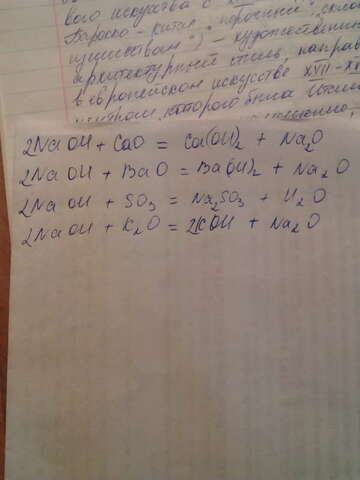 вого искусства с
Барокко - китая "порочный",
излишествам") - художественн
архитектурный стиль, направ
в европейском искусстве XVII - X
центром которого была Итали
2NaOH + CaO = Ca(OH)2 + Na2O
2NaOH + BaO = Ba(OH)2 + Na2O
2NaOH + SO3 = Na2SO3 + H2O
2NaOH + K2O = 2KOH + Na2O